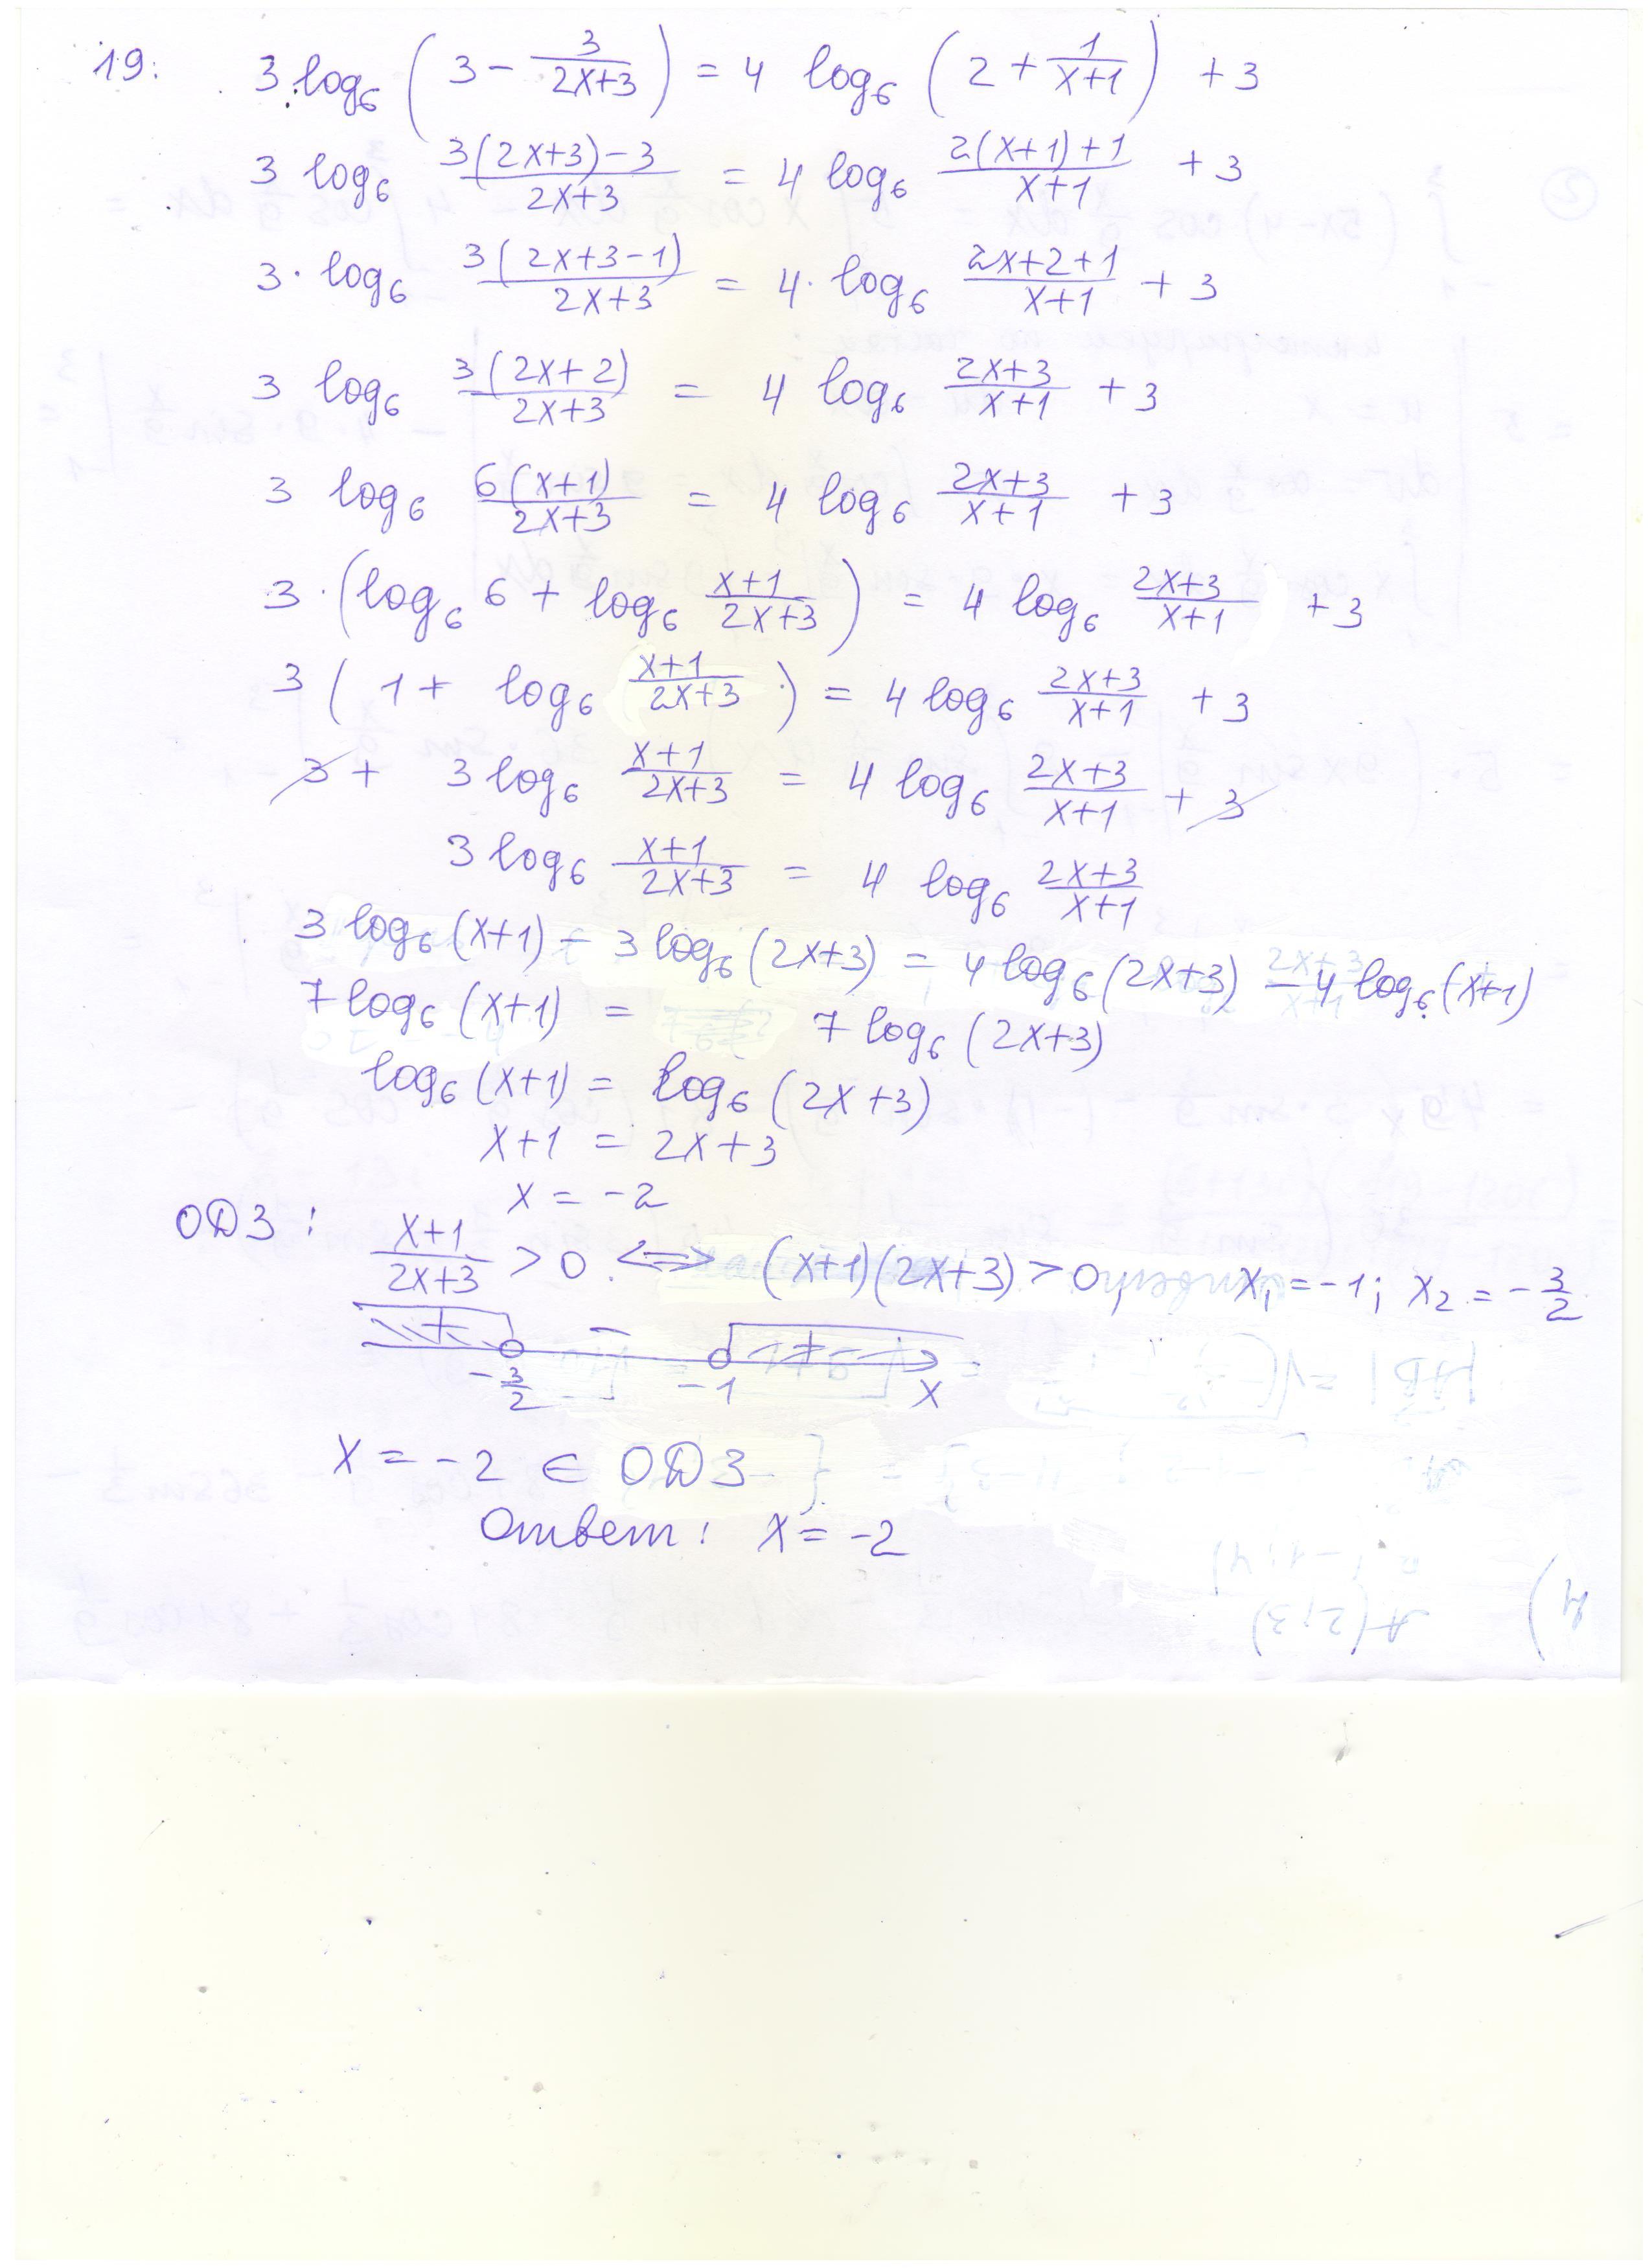 19: 3 log₆ (3 − 3/(2x+3)) = 4 log₆ (2 + 1/(x+1)) + 3
3 log₆ (3(2x+3)−3)/(2x+3) = 4 log₆ (2(x+1)+1)/(x+1) + 3
3 · log₆ (3(2x+3−1))/(2x+3) = 4 · log₆ (2x+2+1)/(x+1) + 3
3 log₆ (3(2x+2))/(2x+3) = 4 log₆ (2x+3)/(x+1) + 3
3 log₆ (6(x+1))/(2x+3) = 4 log₆ (2x+3)/(x+1) + 3
3 · (log₆ 6 + log₆ (x+1)/(2x+3)) = 4 log₆ (2x+3)/(x+1) + 3
3 (1 + log₆ (x+1)/(2x+3)) = 4 log₆ (2x+3)/(x+1) + 3
3 + 3 log₆ (x+1)/(2x+3) = 4 log₆ (2x+3)/(x+1) + 3
3 log₆ (x+1)/(2x+3) = 4 log₆ (2x+3)/(x+1)
3 log₆ (x+1) − 3 log₆ (2x+3) = 4 log₆ (2x+3) − 4 log₆ (x+1)
7 log₆ (x+1) = 7 log₆ (2x+3)
log₆ (x+1) = log₆ (2x+3)
x+1 = 2x+3
x = −2
ОДЗ: (x+1)/(2x+3) > 0 <=> (x+1)(2x+3) > 0, x₁ = −1; x₂ = −3/2
+ − +
−3/2 −1 x
x = −2 ∈ ОДЗ
Ответ: x = −2